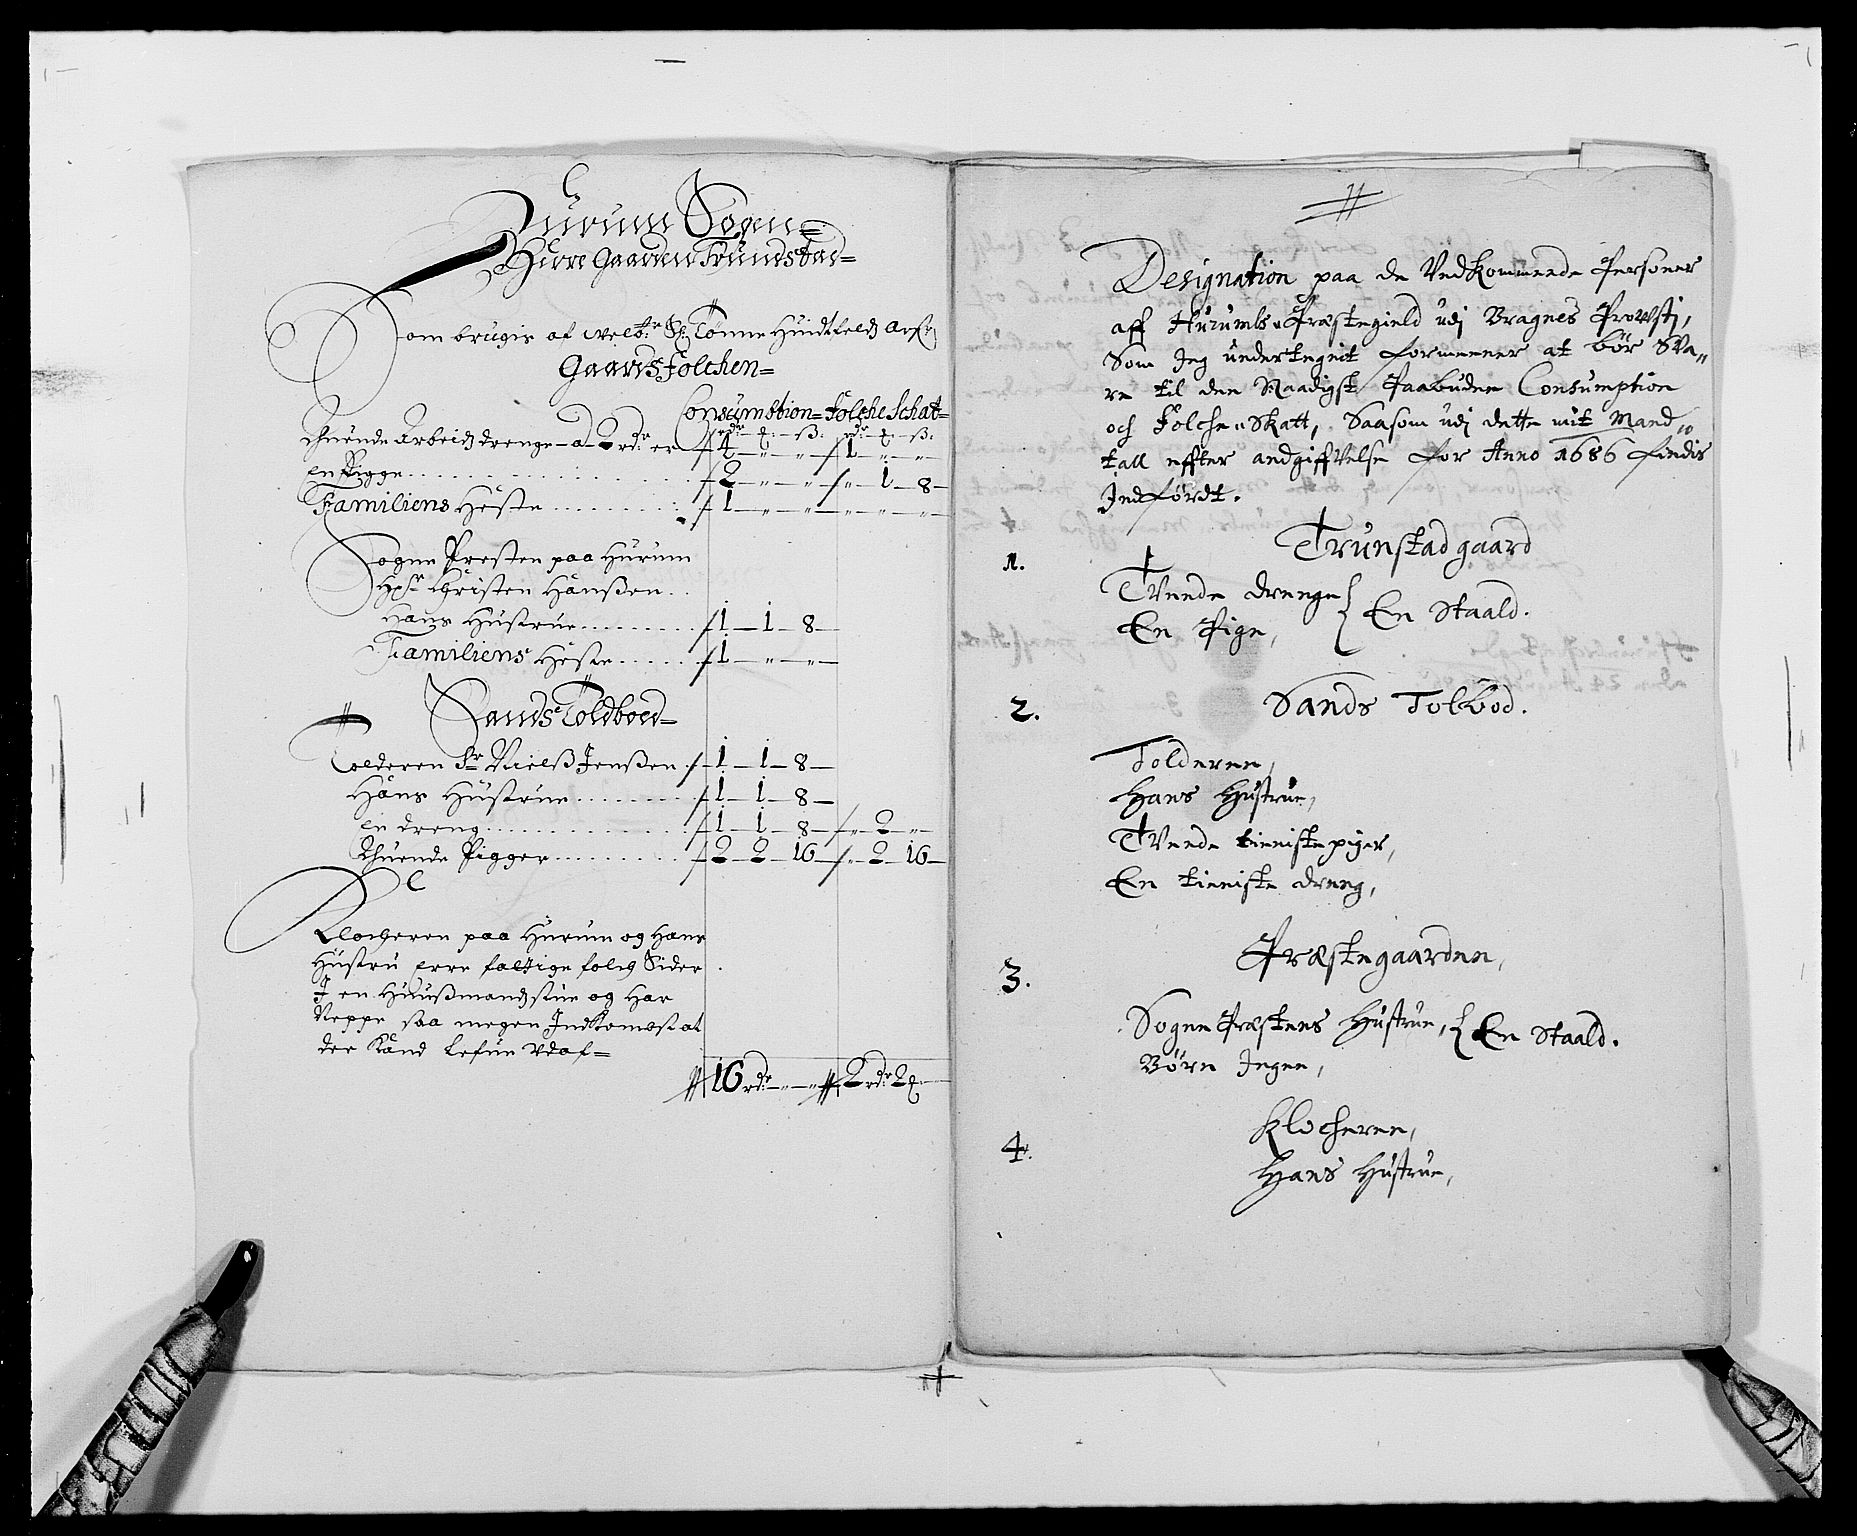 Hurum Sogn=
Herre Gaarden Trundstad=
Som brugis af Welb: Sl: Tønne Huidtfeldz Arf:
Gaards Folchen=
Consumstion= Folche Schat=
rdr ₰ ß: rdr ₰ ß:
Thuende Arbeidz drenge a 2 rdr er 4 „ „ 1 „ „
En Pigge 2 „ „ „ 1 8
Familiens Heste 1 „ „ „ „ „
Sogne Presten paa Hurum
Hr Christen Hanßen
Hans Hustrue 1 1 8
Familiens Heste 1 „ „
Sands Toldboed=
Tolderen Sr Nielß Jenßen 1 1 8
Hans Hustrue 1 1 8
En dreng 1 1 8 „ 2 „
Thuende Pigger 2 2 16 „ 2 16
Klocheren paa Hurum og Hans
Hustru erre fattige folch Sider
I en Huußmandz stue og Har
Neppe saa megen Indkombst at
der Kand Lefue Udaf=
16 rdr „ „ 2 rdr 2 ₰
Designation paa de Vedkommende Personer
aff Hurumbs Præstegield udj Bragnes Prowstj,
Som Jeg undertegnit formeener at bør Sva„
re til den Naadigst Paabudne Consumption
och Folche„Skatt, Saasom udj dette mit Mand„
tall effter andgiffvelse for Anno 1686 findis
Indførdt.
1. Trunstad gaard
Tvende drenge
En Pige, En Staald.
2. Sands Tolbod.
Tolderen,
Hans Hustrue,
Tvende tieniste piger,
En tieniste dreng,
3. Præstegaarden,
Sogne Præstens Hustrue, En Staald.
Børn Ingen,
4. Klocheren,
Hans Hustrue,